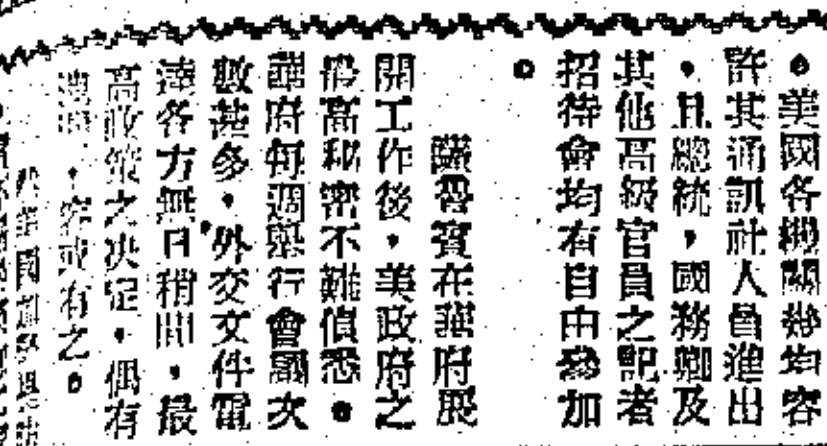 。美國各機關幾均容
許其通訊社人員進出
，且總統，國務卿及
其他高級官員之記者
招待會均有自由參加
。
羅魯賓在華府展
開工作後，美政府之
最高秘密不難偵悉。
華府每週舉行會議次
數甚多，外交文件電
達各方無日稍間，最
高政策之決定，偶有
，容或有之。